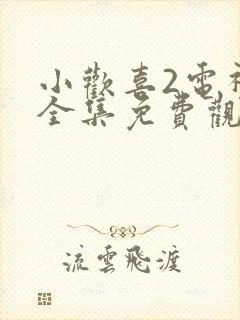 小歡喜2電視
全集免費觀
流雲飛渡